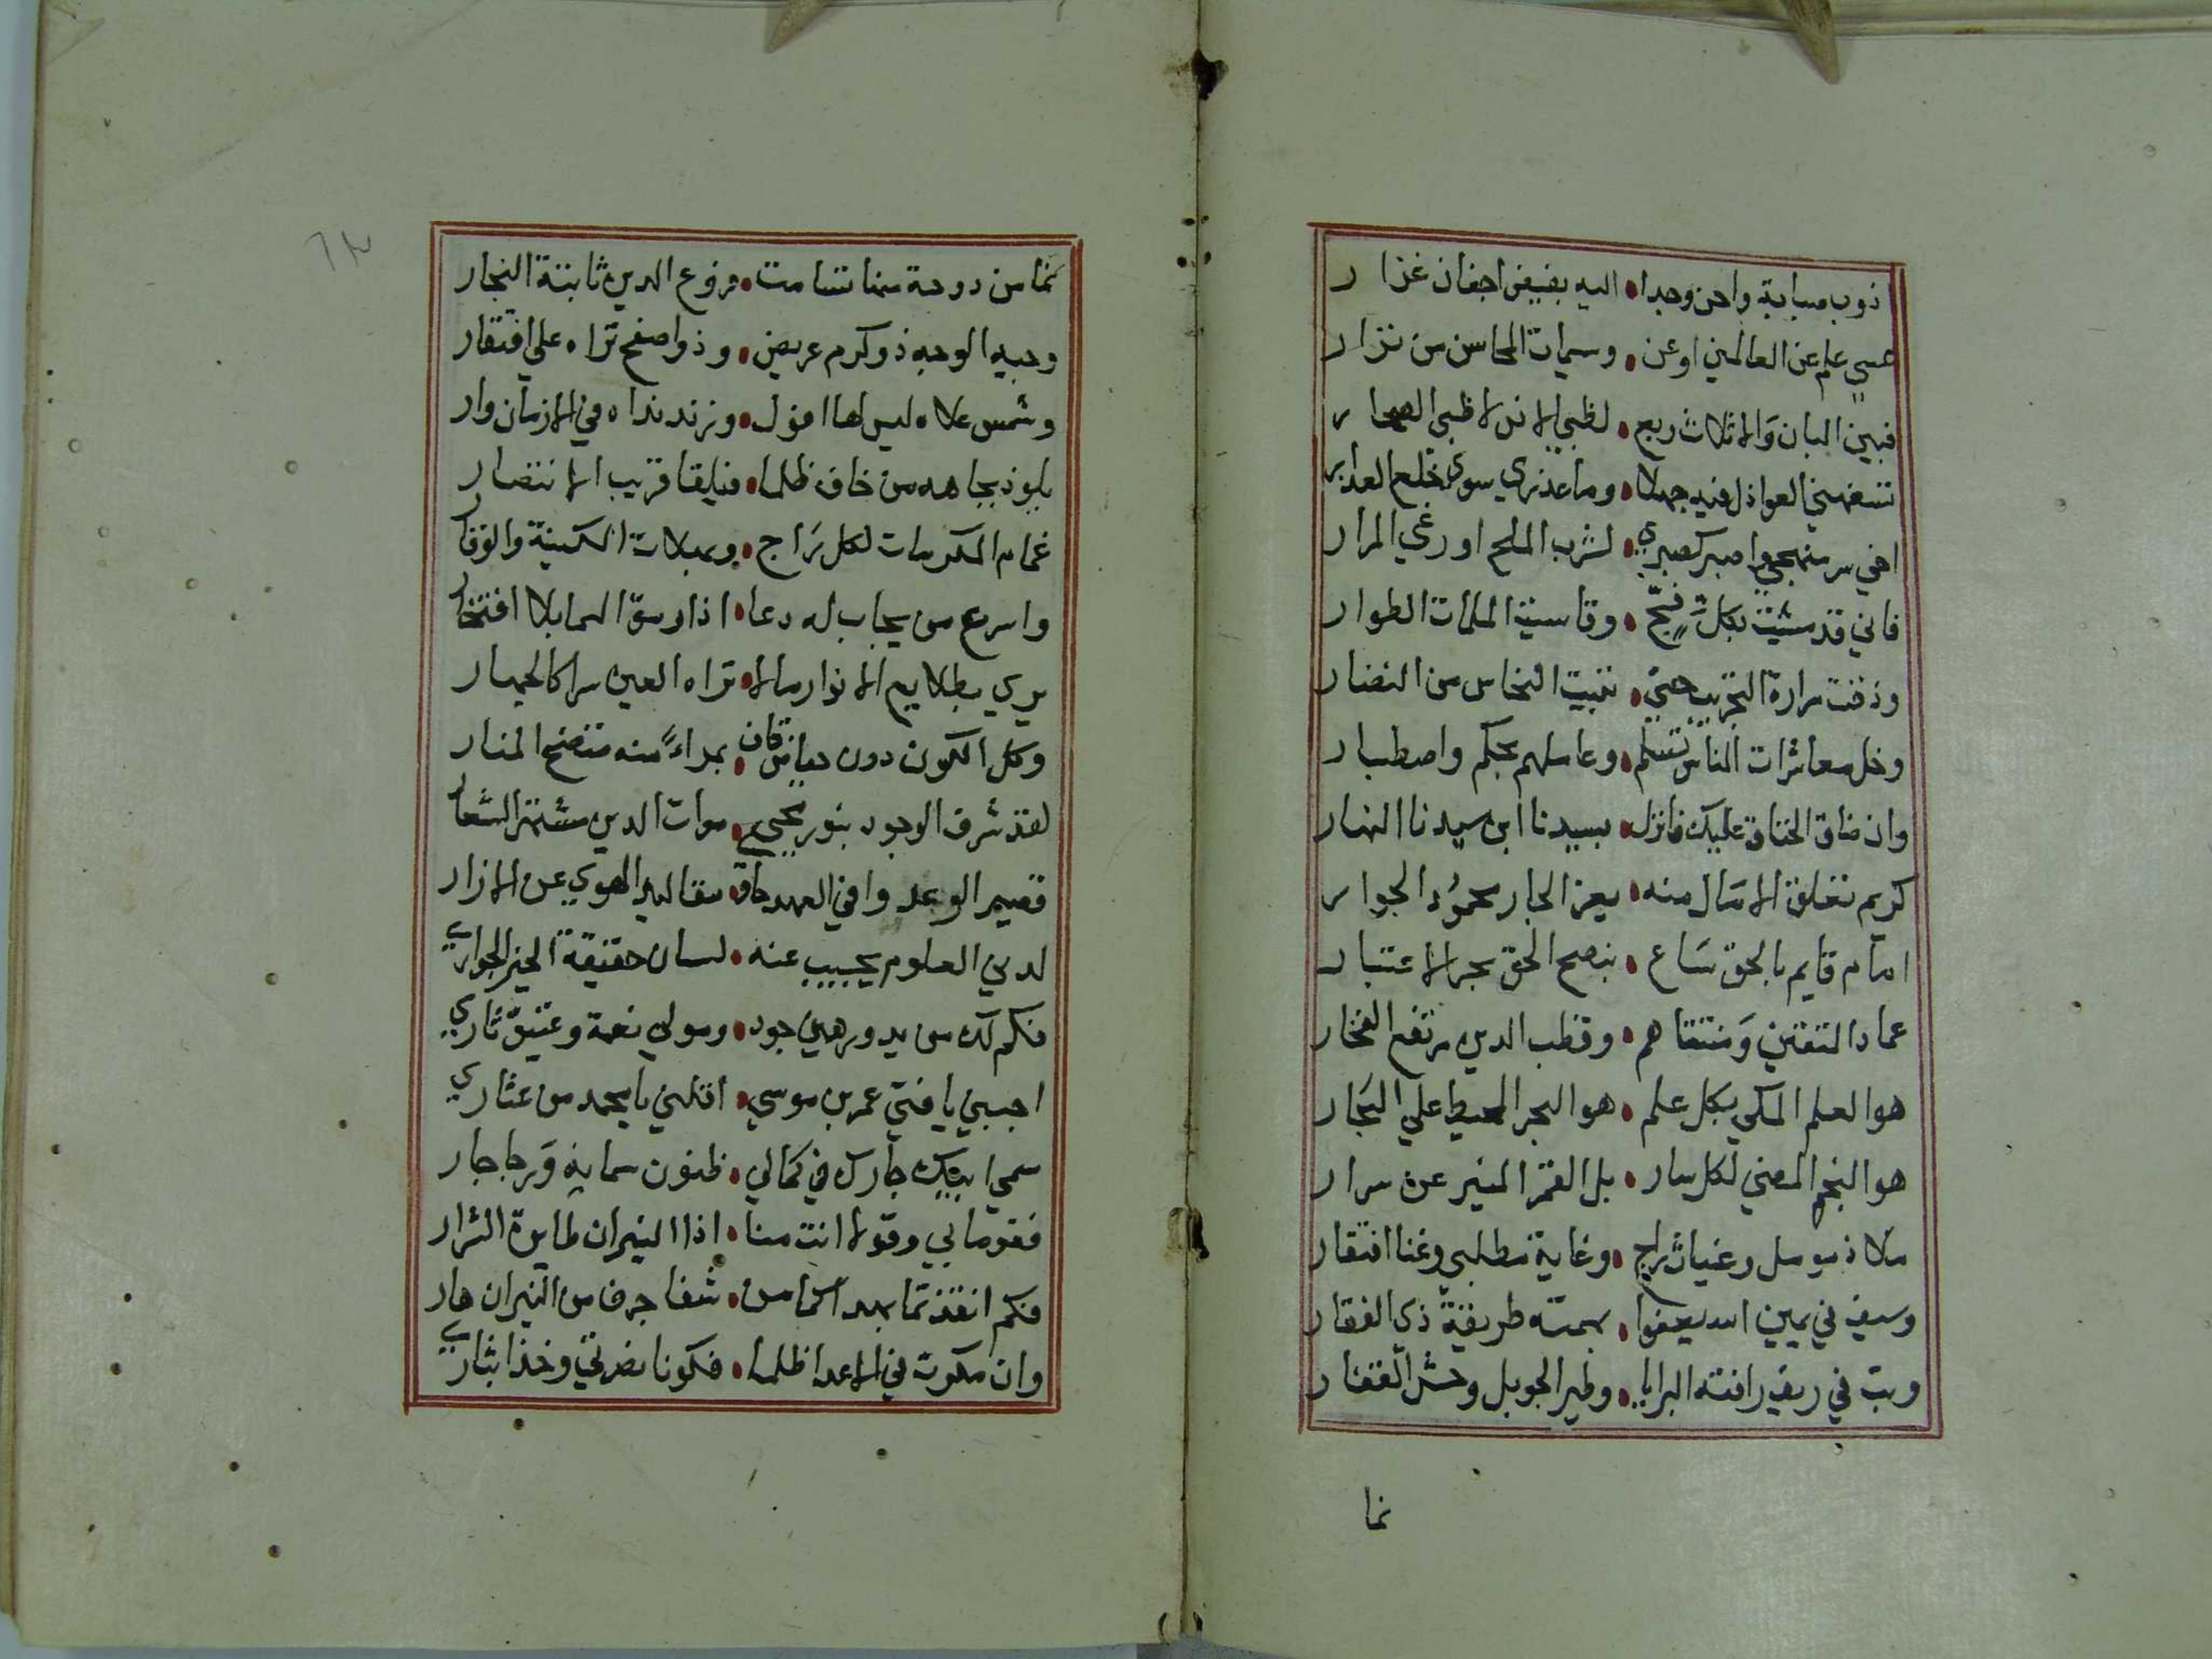 اذوب صبابة واحن وجدا • اليه بفيض اجفان غزار
عسي علم عن العالمين او عن • وسيمات المحاسن من نزار
فبين البان والاثلاث ربع • لظبي الانس لا ظبي الصحار
تسفهني العواذل فيه جهلا • وما عذري سوي خلع العذار
اخي سر منهجي واصبر كصبري • لشرب الملح او رعي المرار
فاني قد مشيت بكل فج • وقاسيت الملمات الطوار
وذقت مرارة التجريب حتي • تبينت النحاس من النضار
وخل معاشرات الناس تسلم • وعاملهم بحكم واصطبار
وان ضاق الخناق عليك فانزل • بسيدنا ابن سيدنا النهار
كريم تغلق الامال منه • بعز الجار محمود الجوار
امام قايم بالحق ساع • بنصح الحق بحر الاعتبار
عماد المتقين ومنتقاهم • وقطب الدين مرتفع الفخار
هو العلم المكي بكل علم • هو البحر المحيط علي البحار
هو النجم المضي لكل سار • بل القمر المنير عن سرار
ملاذ مومل وغياث راج • وغاية مطلبي وغنا افتقار
وسيف في يمين الله يقفوا • بهمته طريقة ذي الفقار
وبث في ريف رافته البرايا • وطير الجو بل وحش القفار
نما
نما من دوحة سمنا تسامت • فروع الدين ثابتة النجار
وجيه الوجه ذو كرم عريض • وذوا صفح تراه علي افتقار
وشمس علاه ليس لها افول • وزند نداه في الازمان وار
يلوذ بجاهه من خاف ظلما • فيلقا قريب الانتصار
غمام المكرمات لكل راج • وبملات السكينة والوقار
واسرع من يجاب له دعا • اذا رمق السما بلا افتخار
يري بطلايع الانوار مالا • تراه العين سرا كالجهار
وكل الكون دون حياض قاف • بمراء منه متضح المنار
لقد شرف الوجود بنور محيي • موات الدين مشتهر الشعار
قصير الوعد وافي العهد حاو • مقاليد الهوي عن الازار
لدني العلوم يجيب عنه • لسان حقيقة الخير الجواري
فكم لك من يد ورهين جود • ومولي نعمة وعتيق ثاري
اجبني يا فتي عمر بن موسي • اقلني يا محمد من عثاري
سمي ابيك جارك في كمالي • ظنون سمايه ورجا جار
فقوما بي وقولا انت منا • اذا النيران طايرة الشرار
فكم انقذتما بعد اسما من • شفا جرف من النيران هار
وان مكرت في الاعدا ظلما • فكونا نصرتي وخذا بثاري